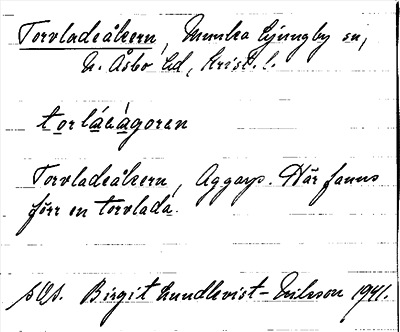 Torvladeåkern, Munka Ljungby sn,
N. Åsbo hd, Krist. l.
torláeàgoren
Torvladeåkern, Aggarp. Här fanns
förr en torvlada.
Birgit Lundkvist-Nilsson 1941.